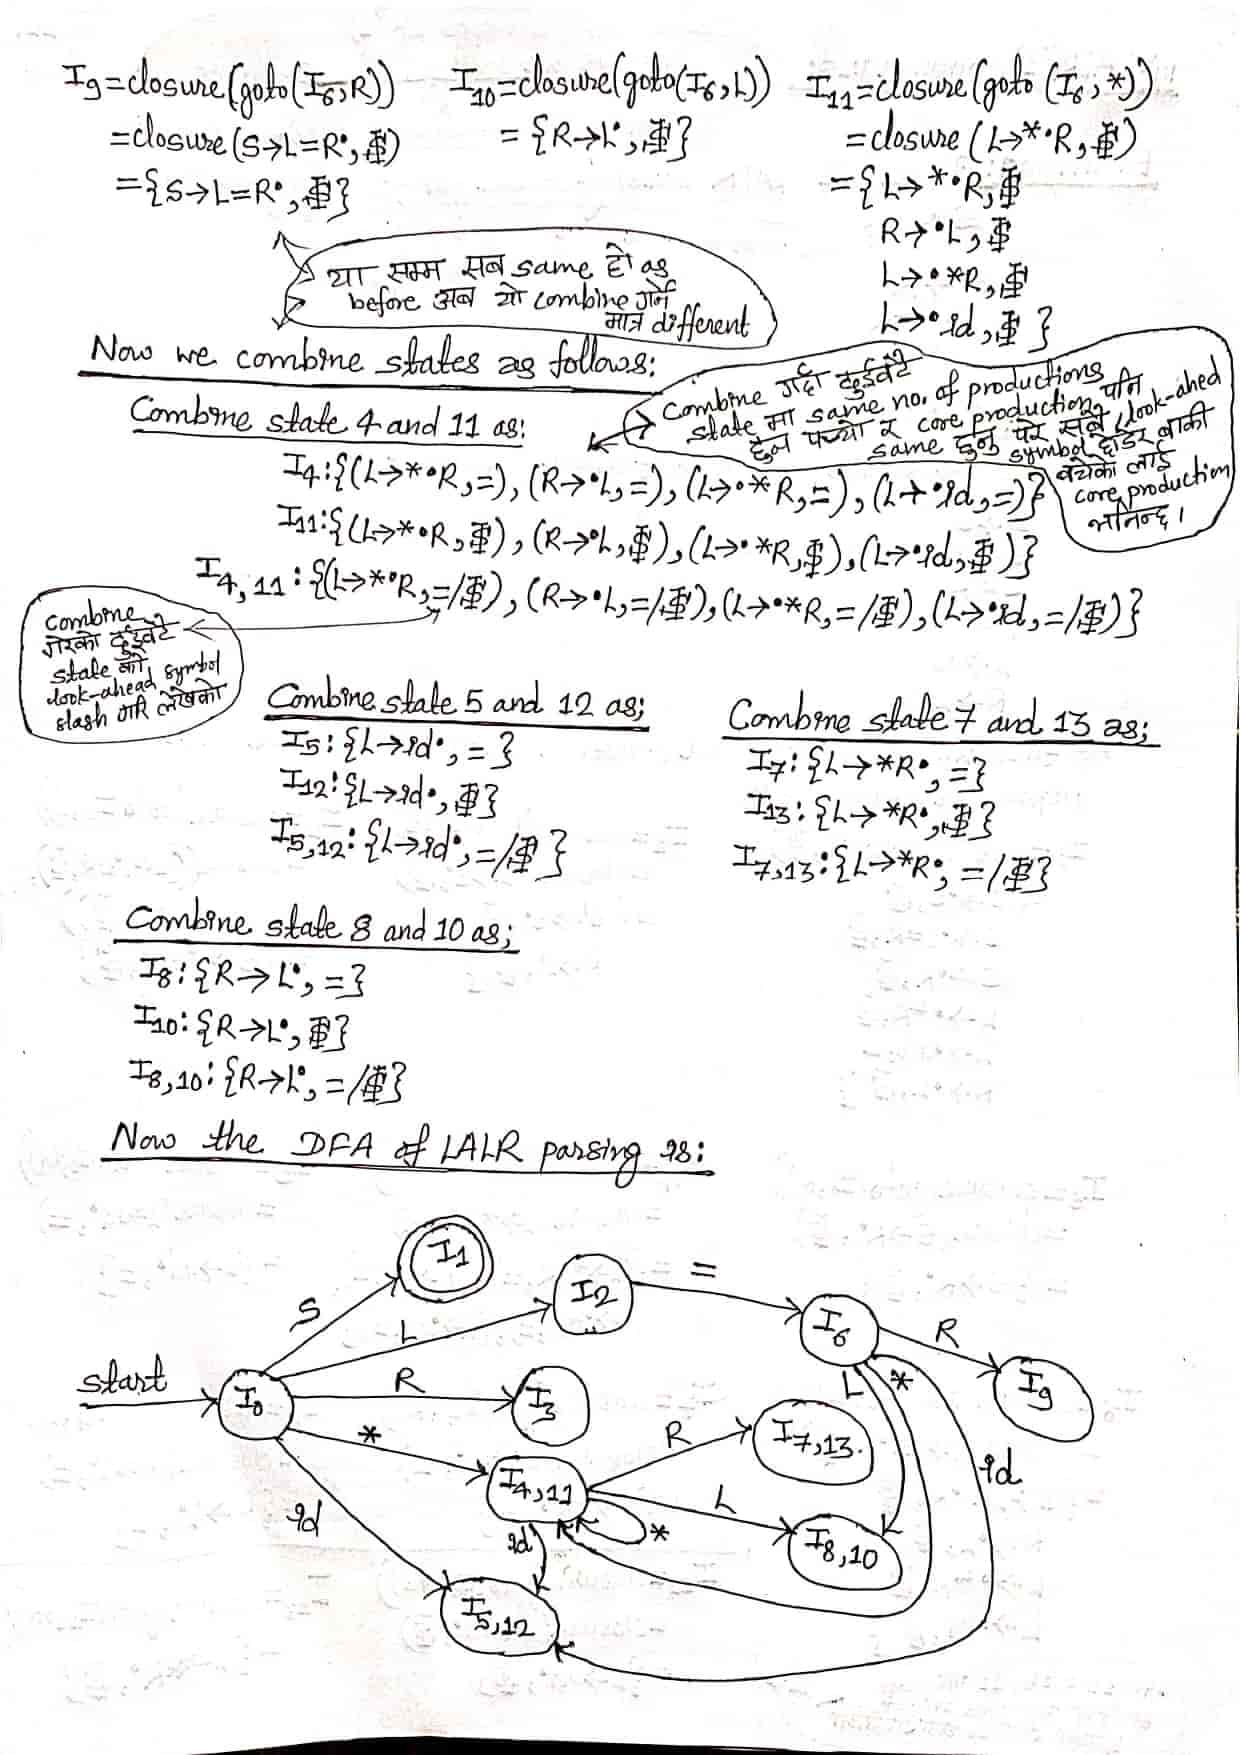 I9=closure(goto(I6,R))
=closure(S→L=R•,$)
={S→L=R•,$}
I10=closure(goto(I6,L))
={R→L•,$}
I11=closure(goto (I6,*))
=closure(L→*•R,$)
={L→*•R,$
R→•L,$
L→•*R,$
L→•id,$}
या सम्म सब same हो as
before अब यो combine गर्ने
मात्र different
Now we combine states as follows:
Combine गर्दा दुईवटै
state मा same no. of productions
हुन पर्‍यो र core production पनि
same हुनु पर्‍यो सबै look-ahed
symbol छोडेर बाकी
बचेका लाई
core production
भनिन्छ।
Combine state 4 and 11 as:
I4:{(L→*•R,=),(R→•L,=),(L→•*R,=),(L→•id,=)}
I11:{(L→*•R,$),(R→•L,$),(L→•*R,$),(L→•id,$)}
I4,11:{(L→*•R,=/$),(R→•L,=/$),(L→•*R,=/$),(L→•id,=/$)}
combine
गरेको दुईवटै
state को
look-ahead symbol
slash गरि लेखेको
Combine state 5 and 12 as;
I5:{L→id•,=}
I12:{L→id•,$}
I5,12:{L→id•,=/$}
Combine state 7 and 13 as;
I7:{L→*R•,=}
I13:{L→*R•,$}
I7,13:{L→*R•,=/$}
Combine state 8 and 10 as;
I8:{R→L•,=}
I10:{R→L•,$}
I8,10:{R→L•,=/$}
Now the DFA of LALR parsing is:
I1
I2
=
S
L
I6
R
start
R
L
*
I9
I0
I3
*
R
I7,13
id
I4,11
L
id
id
*
I8,10
I5,12